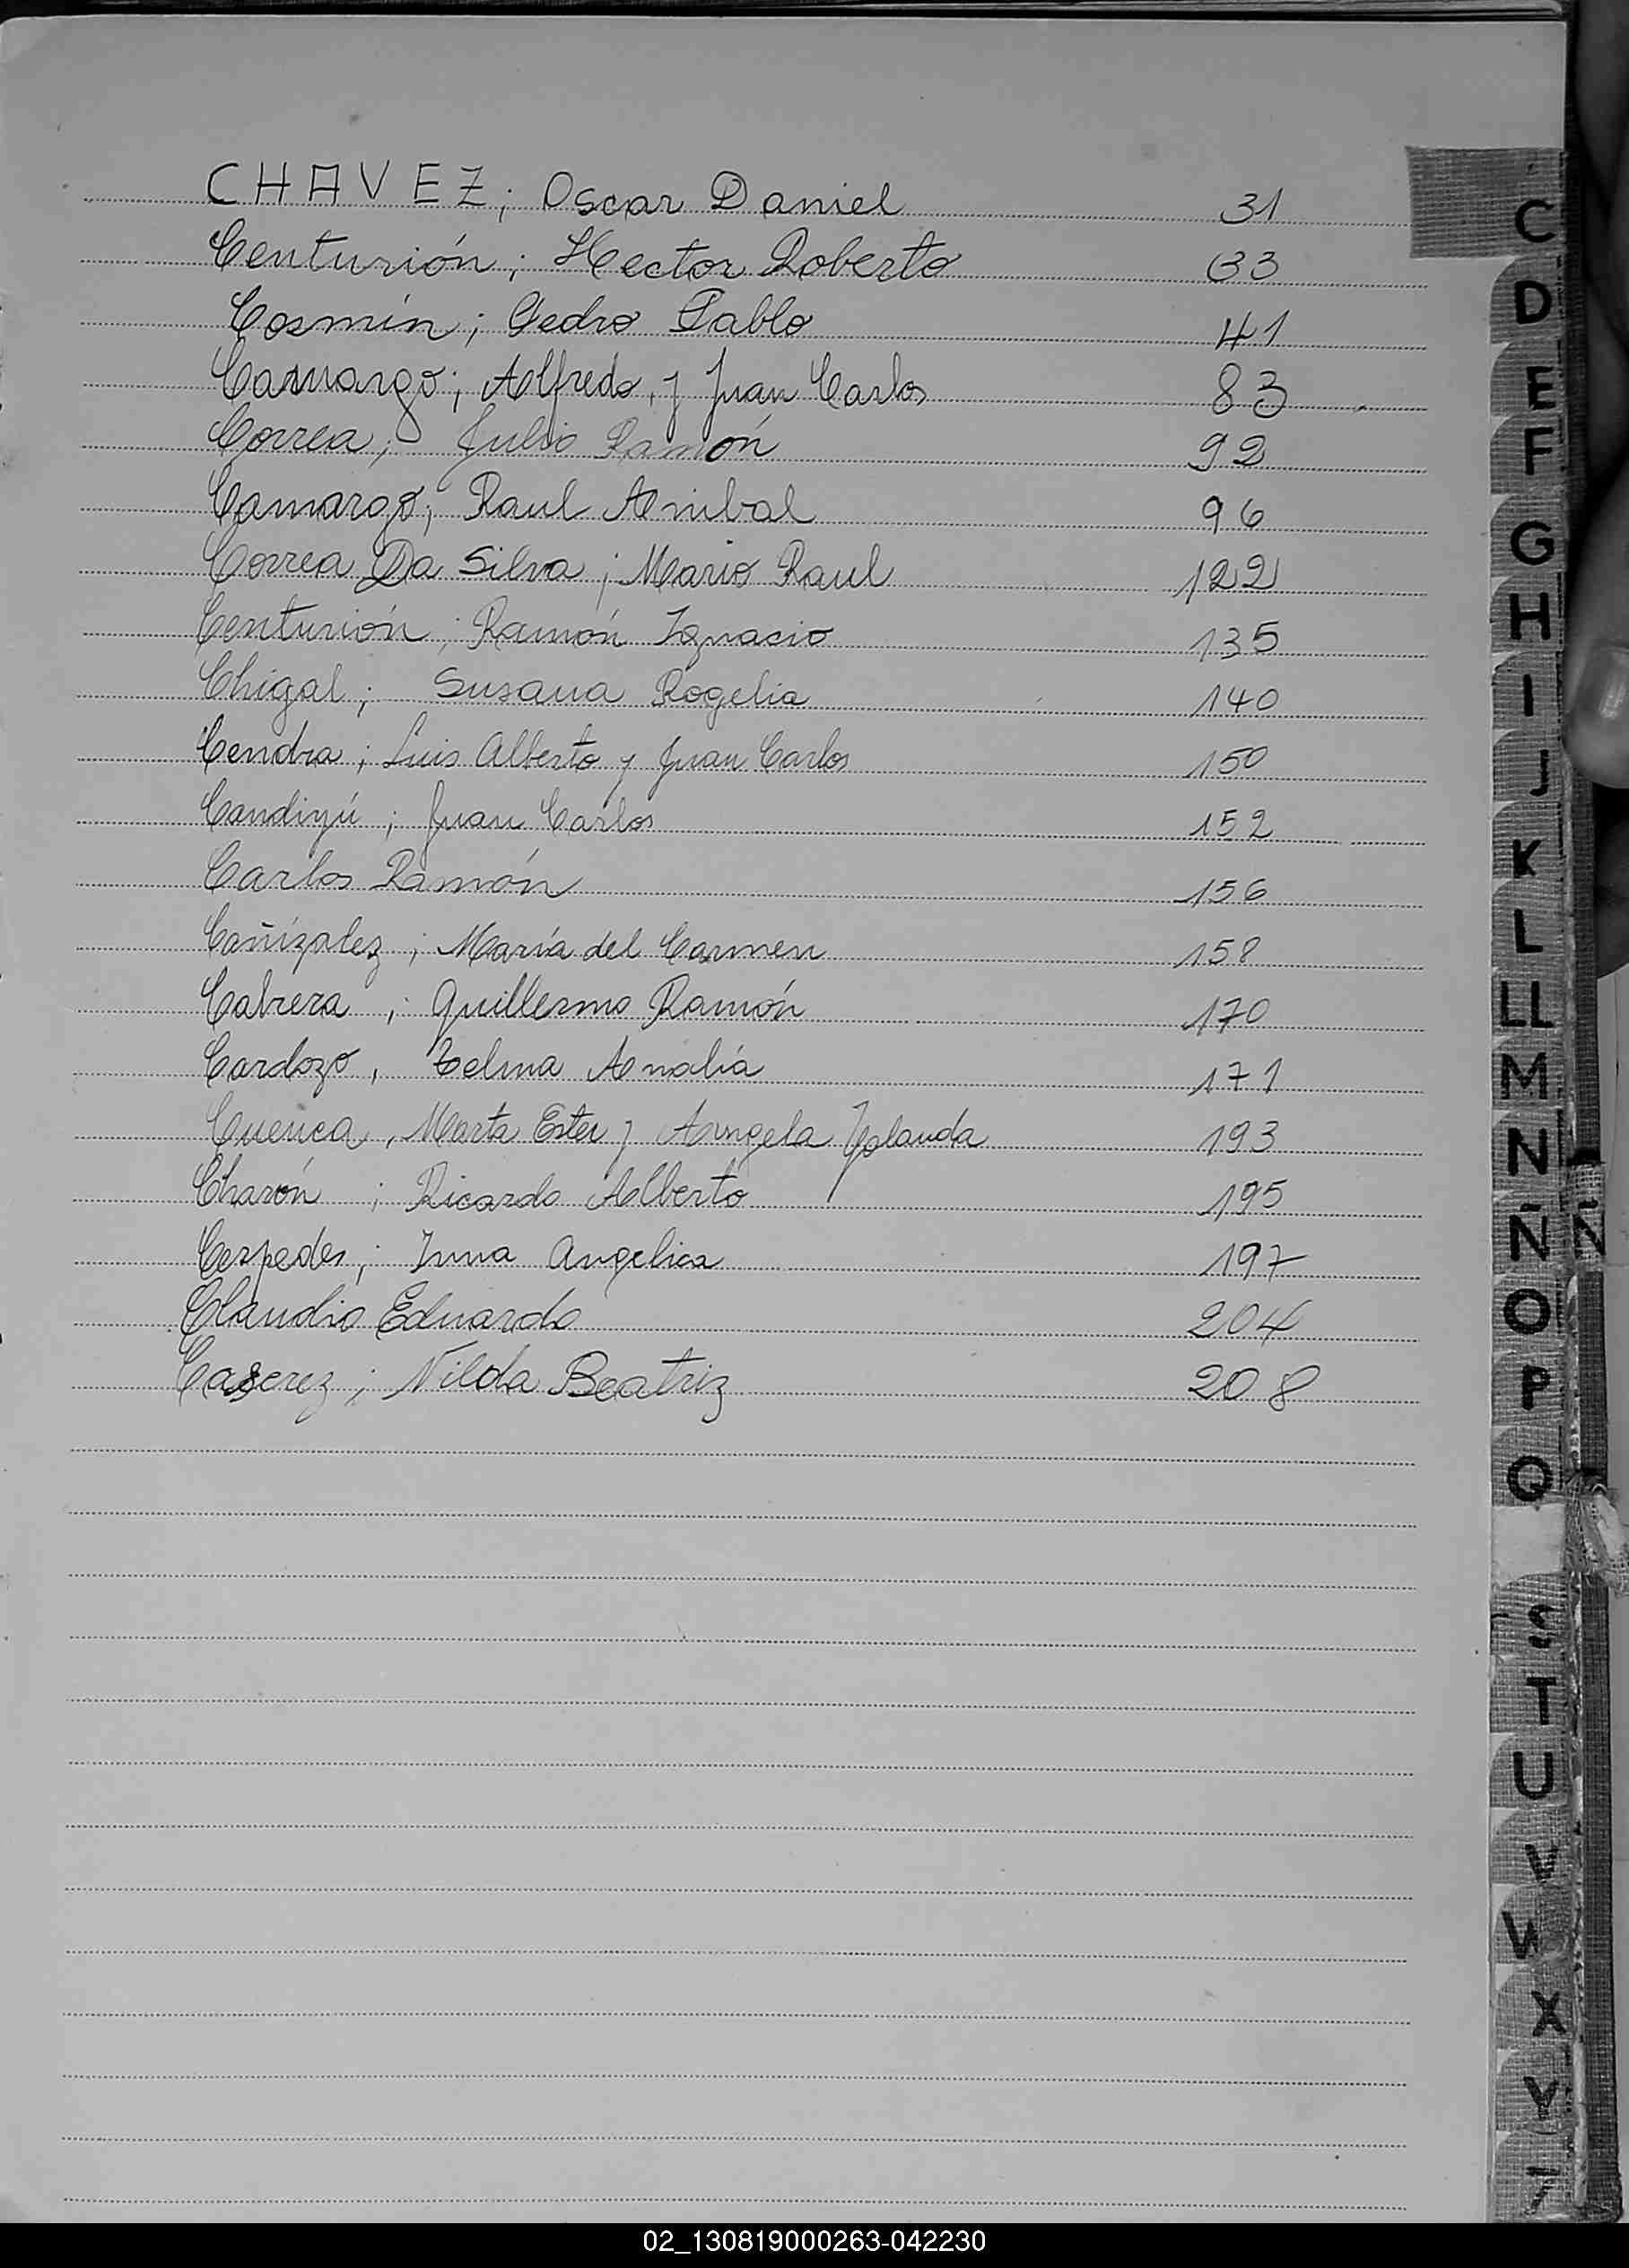 CHAVEZ; Oscar Daniel 31
Centurión; Hector Roberto 33
Cosmin; Pedro Pablo 41
Camargo; Alfredo, y Juan Carlos 83
Correa; Julio Ramón 92
Camargo; Raul Anibal 96
Correa Da Silva; Mario Raul 122
Centurión; Ramón Ignacio 135
Chigal; Susana Rogelia 140
Cendra; Luis Alberto y Juan Carlos 150
Candiyú; Juan Carlos 152
Carlos Ramón 156
Cañizalez; María del Carmen 158
Cabrera; Guillermo Ramón 170
Cardozo, Telma Analía 171
Cuenca, Marta Ester y Angela Yolanda 193
Charón; Ricardo Alberto 195
Cespedes; Inna Angelica 197
Claudio Eduardo 204
Caserez; Nilda Beatriz 208
C
D
E
F
G
H
I
J
K
L
LL
M
N
Ñ
O
P
Q
S
T
U
V
W
X
Y
02_130819000263-042230